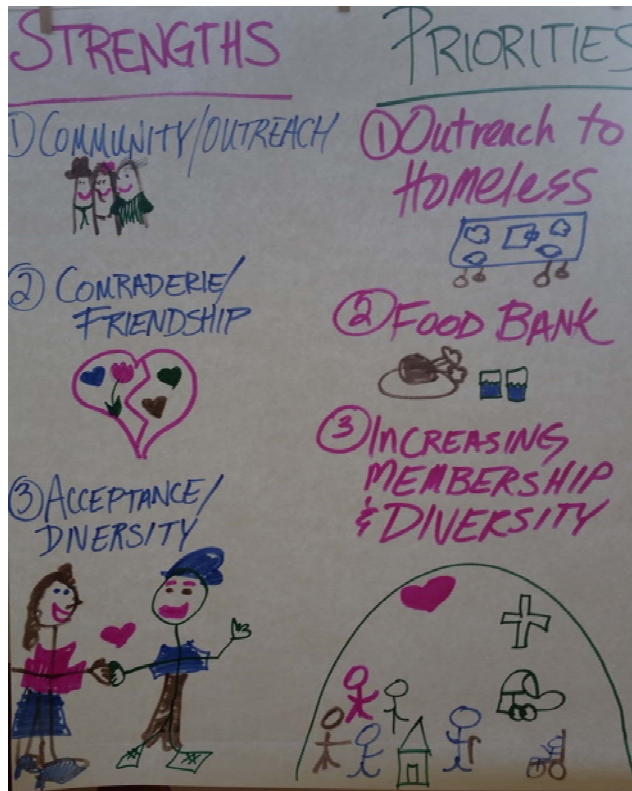 STRENGTHS
1) COMMUNITY/OUTREACH
2 COMRADERIE/
FRIENDSHIP
3 ACCEPTANCE/
DIVERSITY
PRIORITIES
1 Outreach to
Homeless
2 FOOD BANK
3 INCREASING
MEMBERSHIP
& DIVERSITY